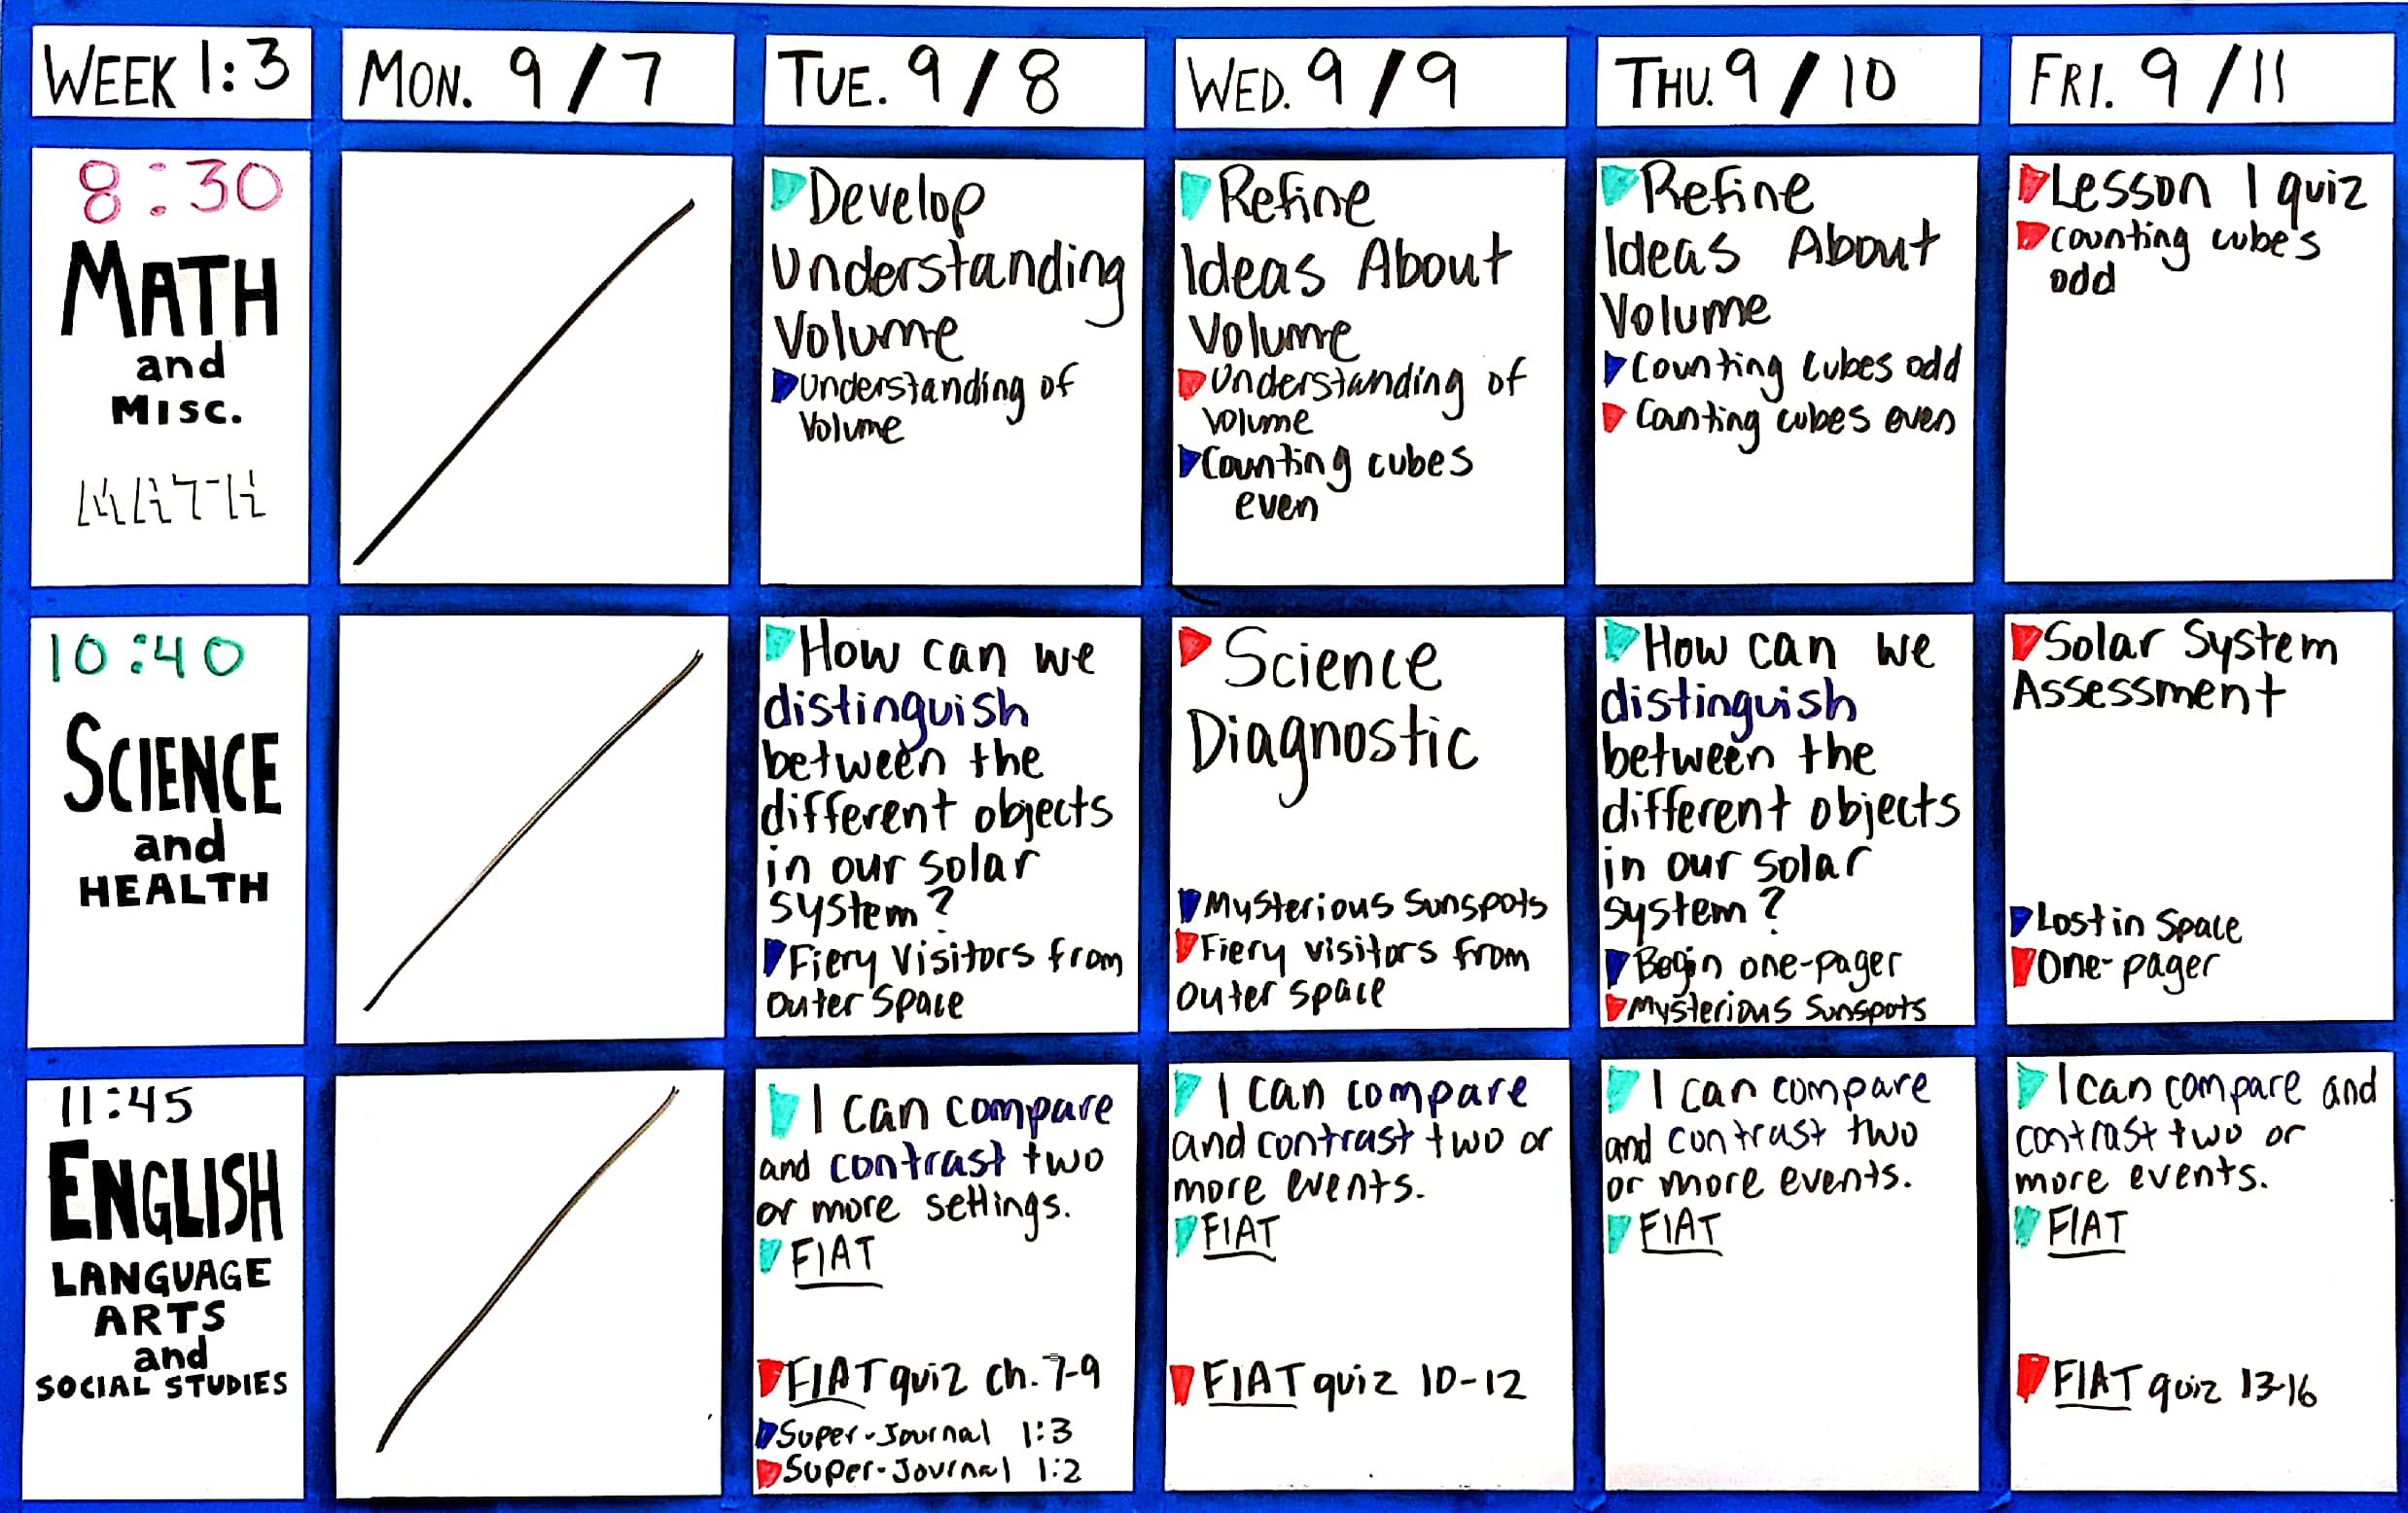 WEEK 1:3
MON. 9/7
TUE. 9/8
WED. 9/9
THU. 9/10
FRI. 9/11
8:30
MATH
and
MISC.
MATH
Develop
Understanding
Volume
Understanding of
Volume
Refine
Ideas About
Volume
Understanding of
volume
Counting cubes
even
Refine
Ideas About
Volume
Counting cubes odd
Counting cubes even
Lesson 1 quiz
counting cube's
odd
10:40
SCIENCE
and
HEALTH
How can we
distinguish
between the
different objects
in our solar
system?
Fiery Visitors from
Outer Space
Science
Diagnostic
Mysterious Sunspots
Fiery visitors from
outer space
How can we
distinguish
between the
different objects
in our solar
system?
Begin one-pager
Mysterious Sunspots
Solar System
Assessment
Lost in Space
One-pager
11:45
ENGLISH
LANGUAGE
ARTS
and
SOCIAL STUDIES
I can compare
and contrast two
or more settings.
FIAT
FIAT quiz ch. 7-9
Super-Journal 1:3
Super-Journal 1:2
I can compare
and contrast two or
more events.
FIAT
FIAT quiz 10-12
I can compare
and contrast two
or more events.
FIAT
I can compare and
contrast two or
more events.
FIAT
FIAT quiz 13-16